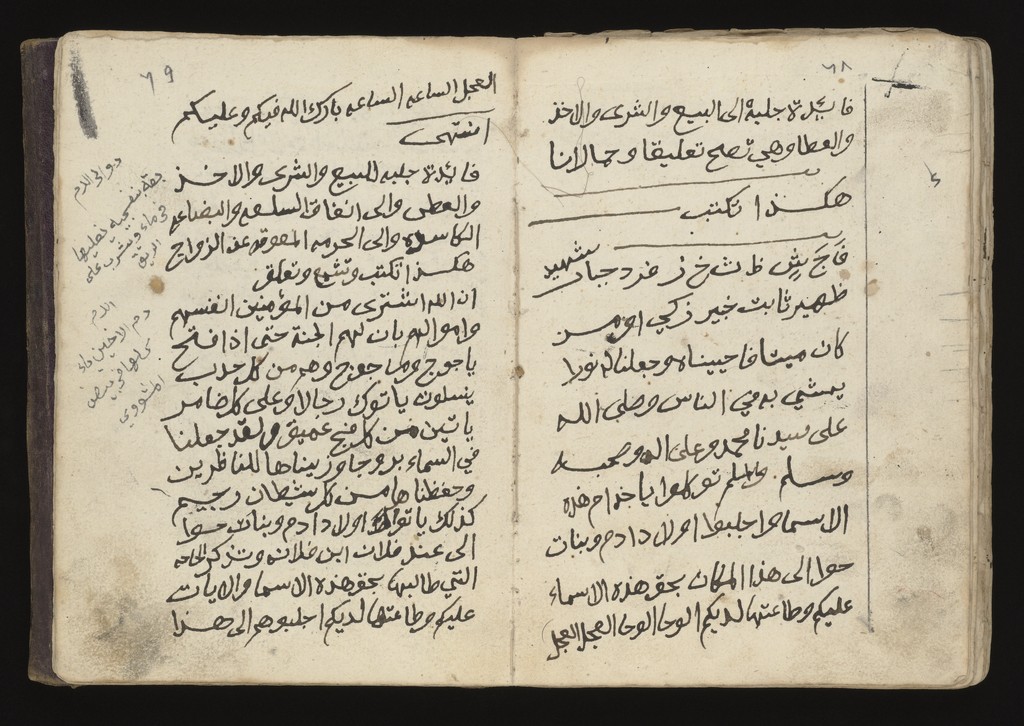 ٦٨
فائدة جلبة الى البيع والشرى والاخذ
والعطا وهي تصح تعليقا وحمالانا
هكذا تكتب
فَجَشٍ ظ ث خ ز فرد جبار شهيد
ظهير ثابت خبير زكي اومن
كان ميتا فاحييناه وجعلنا له نورا
يمشي به في الناس وصلى الله
على سيدنا محمد وعلى اله وصحبه
وسلم توكلوا يا خدام هذه
الاسما واجلبوا اولاد ادم وبنات
حوا الى هذا المكان بحق هذه الاسماء
عليكم وطاعتها لديكم الوحا الوحا العجل العجل
٦٩
العجل الساعه الساعه بارك الله فيكم وعليكم
انتهى
فائدة جلبه للبيع والشرى والاخذ
والعطى والى انفاق السلعه والبضاعه
الكاسده والى الحرمه المعوقه عن الزواج
هكذا تكتب وتشمع وتعلق
ان الله اشترى من المؤمنين انفسهم
واموالهم بان لهم الجنة حتى اذا فتح
ياجوج وماجوج وهم من كل حدب
ينسلون ياتوك رجالا وعلى كل ضامر
ياتين من كل فج عميق ولقد جعلنا
في السماء بروجا وزيناها للناظرين
وحفظناها من كل شيطان رجيم
كذلك ياتوا اولاد ادم وبنات حوا
الى عند فلان ابن فلانه وتذكر الحاجه
التي طالبها بحق هذه الاسما والايات
عليكم وطاعتها لديكم اجلبوهم الى هذا
دوالي الدم
بنفسجيه تغليها
في ماء وتشرب على
الريق
الدم
دم الاخين
في بيض
المشوي